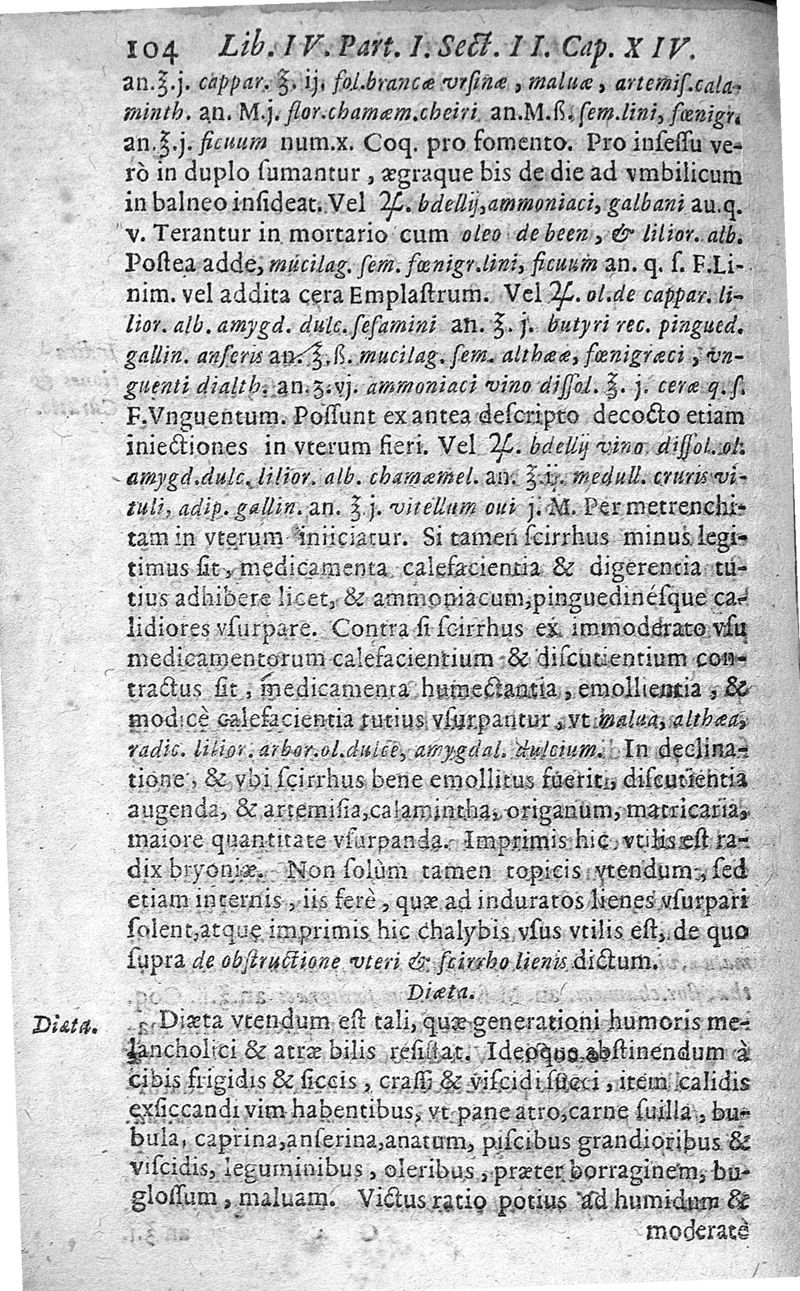 104 Lib. IV. Part. I. Sect. II. Cap. XIV.
an.℥.j. cappar. ℥. ij. fol.brancæ vrsinæ, maluæ, artemis.cala-
minth. an. M.j. flor.chamæm.cheiri an.M.ß. sem.lini, fœnigr.
an.℥.j. ficuum num.x. Coq. pro fomento. Pro insessu ve-
rò in duplo sumantur, ægraque bis de die ad vmbilicum
in balneo insideat. Vel ♃. bdellij, ammoniaci, galbani au.q.
v. Terantur in mortario cum oleo de been, & lilior. alb.
Postea adde, mucilag. sem. fœnigr.lini, ficuum an. q. s. F.Li-
nim. vel addita cera Emplastrum. Vel ♃. ol.de cappar. li-
lior. alb. amygd. dulc. sesamini an. ℥. j. butyri rec. pingued.
gallin. anseris an. ℥.ß. mucilag. sem. althææ, fœnigræci, vn-
guenti dialth. an.ʒ.vj. ammoniaci vino dissol. ℥. j. ceræ q. s.
F.Vnguentum. Possunt ex antea descripto decocto etiam
iniectiones in vterum fieri. Vel ♃. bdellij vino dissol. ol.
amygd.dulc. lilior. alb. chamæmel. an. ℥.ij. medull. cruris vi-
tuli, adip. gallin. an. ℥.j. vitellum oui j. M. Per metrenchi-
tam in vterum iniiciatur. Si tamen scirrhus minus legi-
timus sit, medicamenta calefacientia & digerentia tu-
tius adhibere licet, & ammoniacum, pinguedinésque ca-
lidiores vsurpare. Contra si scirrhus ex immoderato vsu
medicamentorum calefacientium & discutientium con-
tractus sit, medicamenta humectantia, emollientia, &
modicè calefacientia tutius vsurpantur, vt malua, althæa,
radic. lilior. arbor.ol.dulce, amygdal. dulcium. In declina-
tione, & vbi scirrhus bene emollitus fuerit, discutientia
augenda, & artemisia, calamintha, origanum, matricaria,
maiore quantitate vsurpanda. Imprimis hic vtilis est ra-
dix bryoniæ. Non solùm tamen topicis vtendum, sed
etiam internis, iis ferè, quæ ad induratos lienes vsurpari
solent, atque imprimis hic chalybis vsus vtilis est, de quo
supra de obstructione vteri & scirrho lienis dictum.
Diæta.
Diæta.
Diæta vtendum est tali, quæ generationi humoris me-
lancholici & atræ bilis resistat. Ideoque abstinendum à
cibis frigidis & siccis, crassi & viscidi succi, item calidis
exsiccandi vim habentibus, vt pane atro, carne suilla, bu-
bula, caprina, anserina, anatum, piscibus grandioribus &
viscidis, leguminibus, oleribus, præter borraginem, bu-
glossum, maluam. Victus ratio potius ad humidum &
moderatè